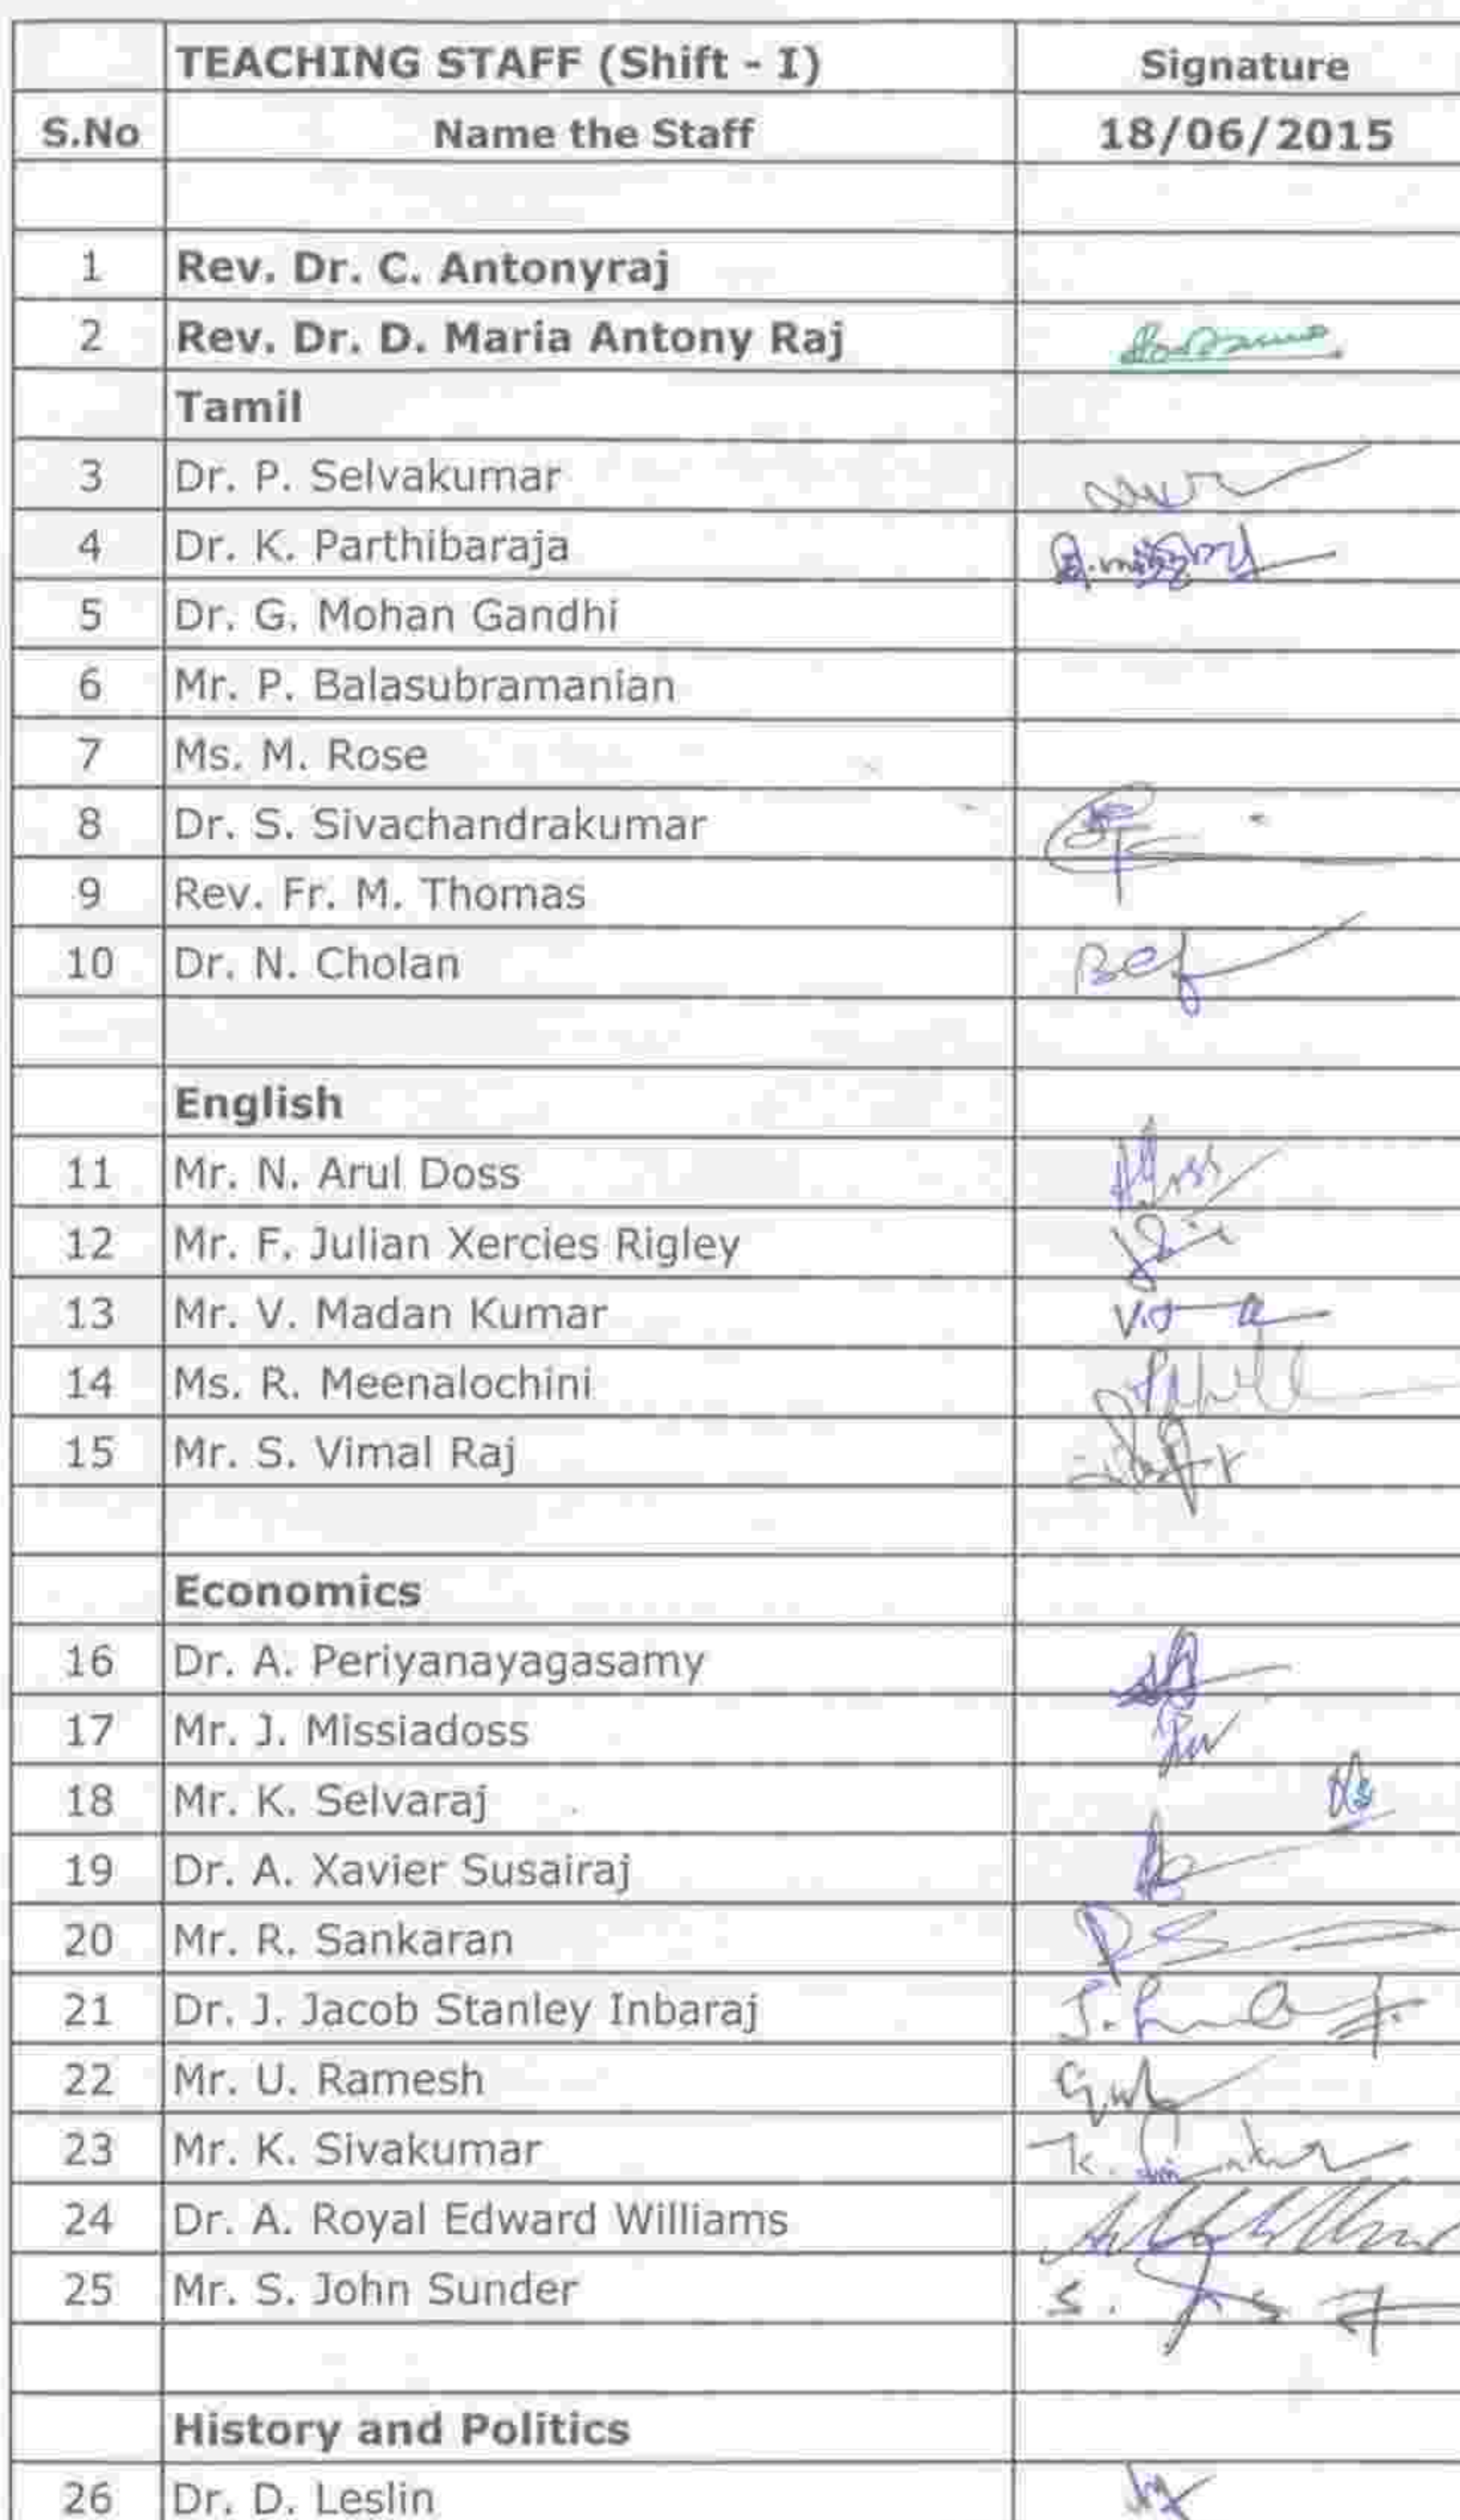 TEACHING STAFF (Shift - I) Signature
S.No Name the Staff 18/06/2015
1 Rev. Dr. C. Antonyraj
2 Rev. Dr. D. Maria Antony Raj
Tamil
3 Dr. P. Selvakumar
4 Dr. K. Parthibaraja
5 Dr. G. Mohan Gandhi
6 Mr. P. Balasubramanian
7 Ms. M. Rose
8 Dr. S. Sivachandrakumar
9 Rev. Fr. M. Thomas
10 Dr. N. Cholan
English
11 Mr. N. Arul Doss
12 Mr. F. Julian Xercies Rigley
13 Mr. V. Madan Kumar
14 Ms. R. Meenalochini
15 Mr. S. Vimal Raj
Economics
16 Dr. A. Periyanayagasamy
17 Mr. J. Missiadoss
18 Mr. K. Selvaraj
19 Dr. A. Xavier Susairaj
20 Mr. R. Sankaran
21 Dr. J. Jacob Stanley Inbaraj
22 Mr. U. Ramesh
23 Mr. K. Sivakumar
24 Dr. A. Royal Edward Williams
25 Mr. S. John Sunder
History and Politics
26 Dr. D. Leslin